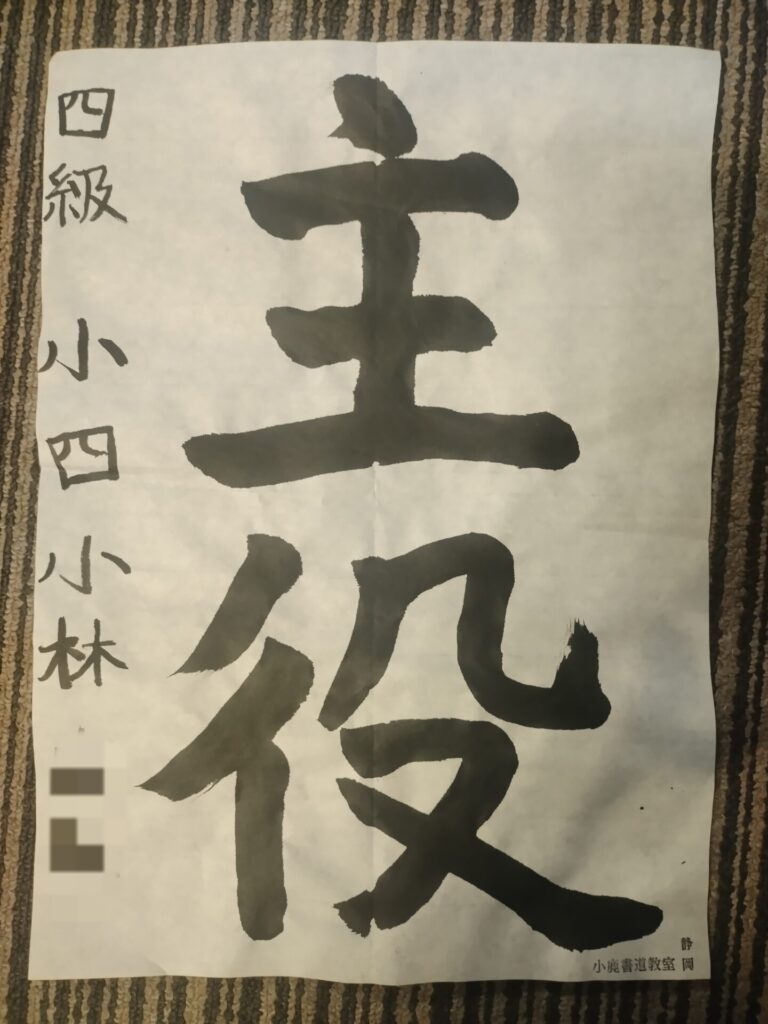 主役
四級 小四 小林
静岡
小鹿書道教室